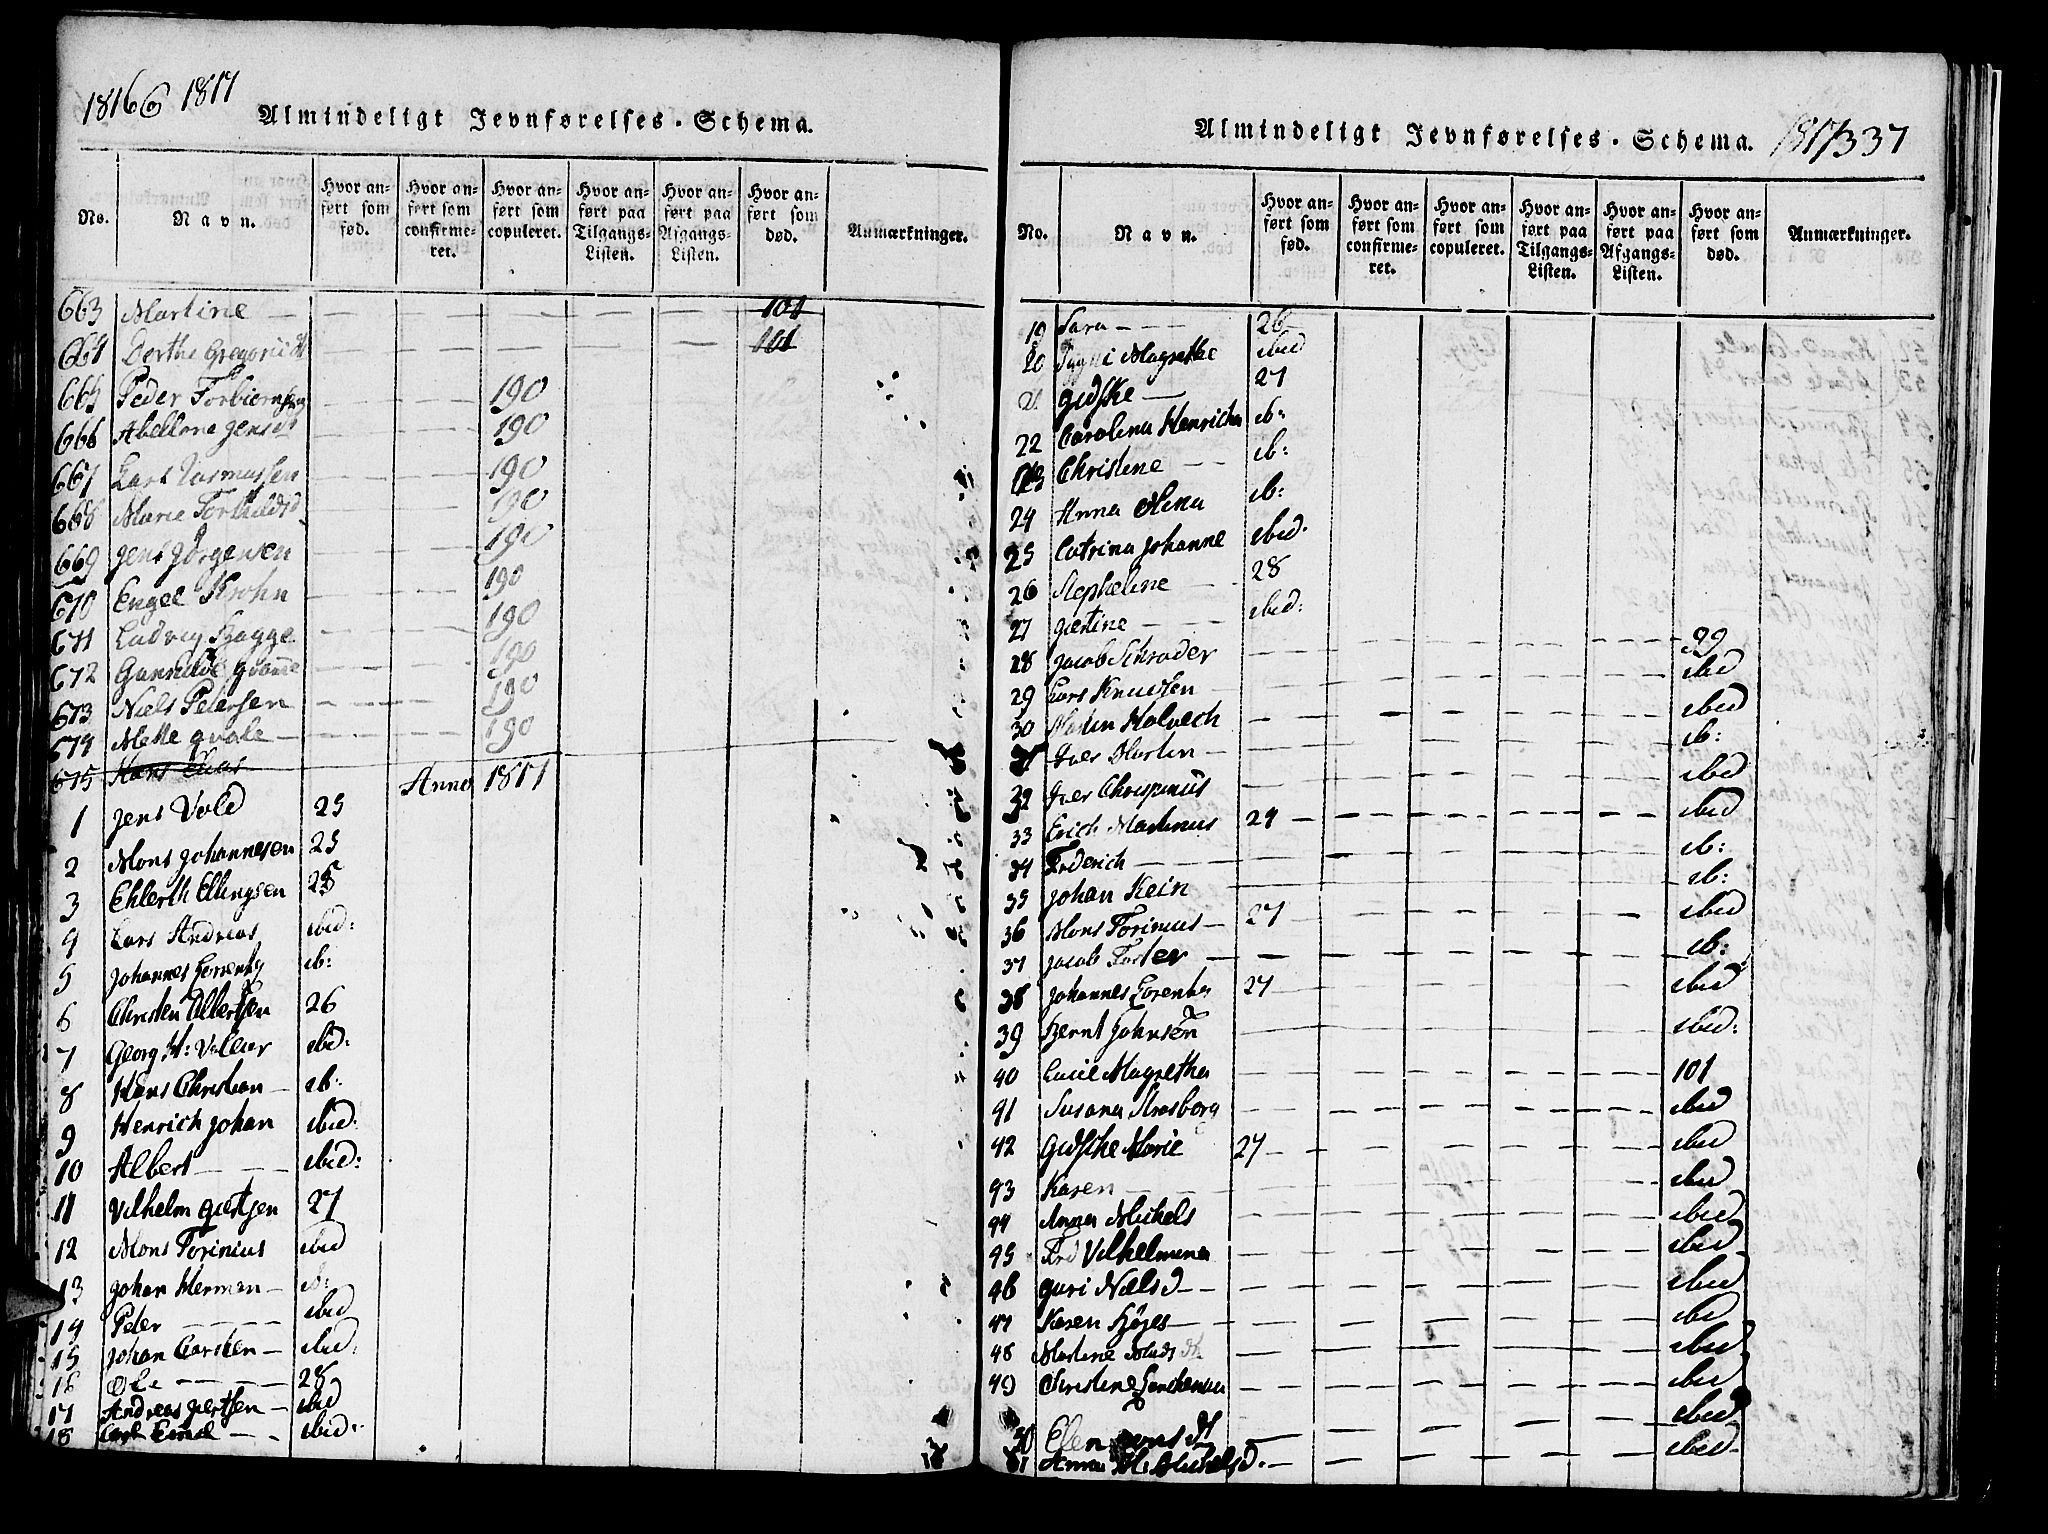 1816 & 1817
Almindeligt Jevnførelses-Schema.
No. Navn. Hvor anført som fød. Hvor anført som confirmeret. Hvor anført som copuleret. Hvor anført paa Tilgangs-Listen. Hvor anført paa Afgangs-Listen. Hvor anført som død. Anmærkninger.
663 Martine 101
664 Dorthe Gregorii D 101
665 Peder Torbiernsen 190
666 Abellone Jensd 190
667 Lars Rasmussen 190
668 Marie Torkildsd 190
669 Jens Jørgensen 190
670 Engel Krohn 190
671 Ludvig 190
672 190
673 Niels Petersen 190
674 Mette qvale 190
675 Hans Elias
Anno 1817
1 Jens Vold 25
2 Mons Johannesen 25
3 Ehlerth Ellingsen 25
4 Lars Andreas ibid:
5 Johannes Lorentz ib:
6 Christen Albertsen 26
7 Georg H: ibid:
8 Hans Christian ib:
9 Henrich Johan ibid:
10 Albert ibid:
11 Vilhelm Giertsen 27
12 Mons Torinius ibid
13 Johan Herman ib:
14 Peter ibid
15 Johan Carsten ibid:
16 Ole 28
17 Andreas Giertsen ibid
18 Carl Emil ibid:
Almindeligt Jevnførelses-Schema. 1817 337
No. Navn. Hvor anført som fød. Hvor anført som confirmeret. Hvor anført som copuleret. Hvor anført paa Tilgangs-Listen. Hvor anført paa Afgangs-Listen. Hvor anført som død. Anmærkninger.
19 Sara 26
20 Magrethe ibid
21 Gidske 27
22 Carolina Henricha ib:
23 Christine ib:
24 Anna Olena ib:
25 Catrina Johanne ibid.
26 Stepheline 28
27 Giertine ibid:
28 Jacob Schrøder 99
29 Lars Knudsen ibid
30 Martin Holvech ibid
31 Iver Martin ib:
32 Iver Chrispinus ibid
33 Erich Martinus 24 ibid
34 Frderich ib:
35 Johan Kein ib:
36 Mons Torinius 27 ibid
37 Jacob Forter ib:
38 Johannes Lorentz 27 ibid
39 Bernt Johnsen ibid:
40 Lucie Magretha 101
41 Susana Strasberg ibid
42 Gidske Marie 27 ibid
43 Karen ibid
44 Anna Michels ibid
45 Frd Vilhelmina ibid
46 Guri Nielsd ibid
47 Karen ibid
48 Martine Mads ibid
49 Christine ibid
50 Elen Mons dt ibid
51 Anna M. Michelsd. ibid